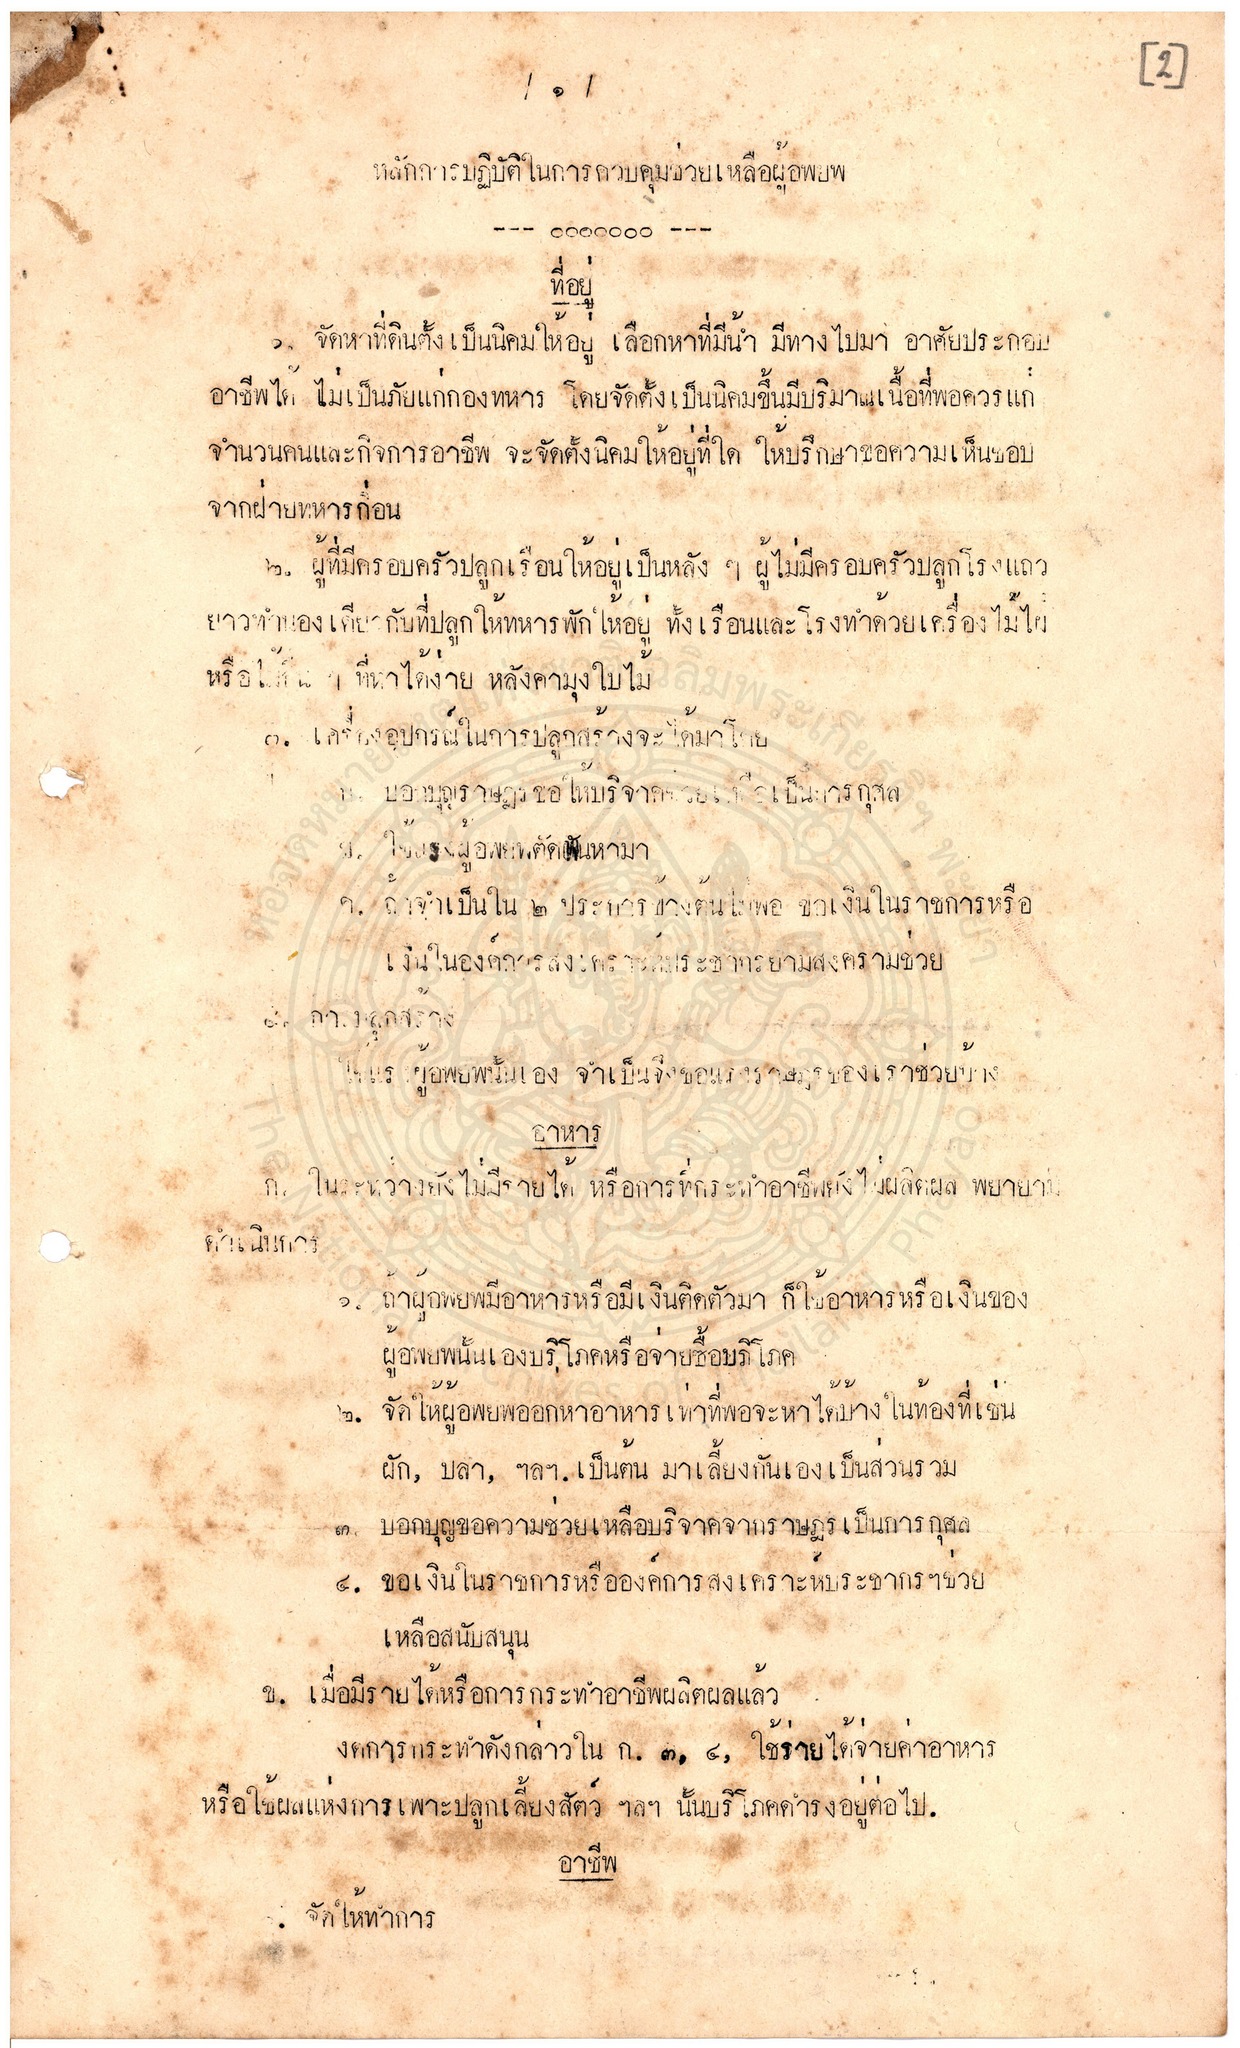 [2]
/ ๑ /
หลักการปฏิบัติในการควบคุมช่วยเหลือผู้อพยพ
--- ๐๐๐๐๐๐๐ ---
ที่อยู่
๑. จัดหาที่ดินตั้งเป็นนิคมให้อยู่ เลือกหาที่มีน้ำ มีทางไปมา อาศัยประกอบ
อาชีพได้ ไม่เป็นภัยแก่กองทหาร โดยจัดตั้งเป็นนิคมขึ้นมีปริมาณเนื้อที่พอควรแก่
จำนวนคนและกิจการอาชีพ จะจัดตั้งนิคมให้อยู่ที่ใด ให้ปรึกษาขอความเห็นชอบ
จากฝ่ายทหารก่อน
๒. ผู้ที่มีครอบครัวปลูกเรือนให้อยู่เป็นหลัง ๆ ผู้ไม่มีครอบครัวปลูกโรงแถว
ยาวทำนองเดียวกับที่ปลูกให้ทหารพักให้อยู่ ทั้งเรือนและโรงทำด้วยเครื่องไม้ไผ่
หรือไม้อื่น ๆ ที่หาได้ง่าย หลังคามุงใบไม้
๓. เครื่องอุปกรณ์ในการปลูกสร้างจะได้มาโดย
ก. บอกบุญราษฎรขอให้บริจาคช่วยเหลือเป็นการกุศล
ข. ใช้แรงผู้อพยพตัดฟันหามา
ค. ถ้าจำเป็นใน ๒ ประการข้างต้นไม่พอ ขอเงินในราชการหรือ
เงินในองค์การสงเคราะห์ประชากรยามสงครามช่วย
๔. การปลูกสร้าง
ใช้แรงผู้อพยพนั้นเอง จำเป็นจึงขอแรงราษฎรของเราช่วยบ้าง
อาหาร
ก. ในระหว่างยังไม่มีรายได้ หรือการที่กระทำอาชีพยังไม่ผลิตผล พยายาม
ดำเนินการ
๑. ถ้าผู้อพยพมีอาหารหรือมีเงินติดตัวมา ก็ใช้อาหารหรือเงินของ
ผู้อพยพนั้นเองบริโภคหรือจ่ายซื้อบริโภค
๒. จัดให้ผู้อพยพออกหาอาหารเท่าที่พอจะหาได้บ้างในท้องที่เช่น
ผัก, ปลา, ฯลฯ. เป็นต้น มาเลี้ยงกันเองเป็นส่วนรวม
๓. บอกบุญขอความช่วยเหลือบริจาคจากราษฎรเป็นการกุศล
๔. ขอเงินในราชการหรือองค์การสงเคราะห์ประชากรฯช่วย
เหลือสนับสนุน
ข. เมื่อมีรายได้หรือการกระทำอาชีพผลิตผลแล้ว
งดการกระทำดังกล่าวใน ก. ๓, ๔, ใช้รายได้จ่ายค่าอาหาร
หรือใช้ผลแห่งการเพาะปลูกเลี้ยงสัตว์ ฯลฯ นั้นบริโภคดำรงอยู่ต่อไป.
อาชีพ
. จัดให้ทำการ
หอจดหมายเหตุแห่งชาติเฉลิมพระเกียรติฯ พะเยา
The National Archives of Thailand Phayao